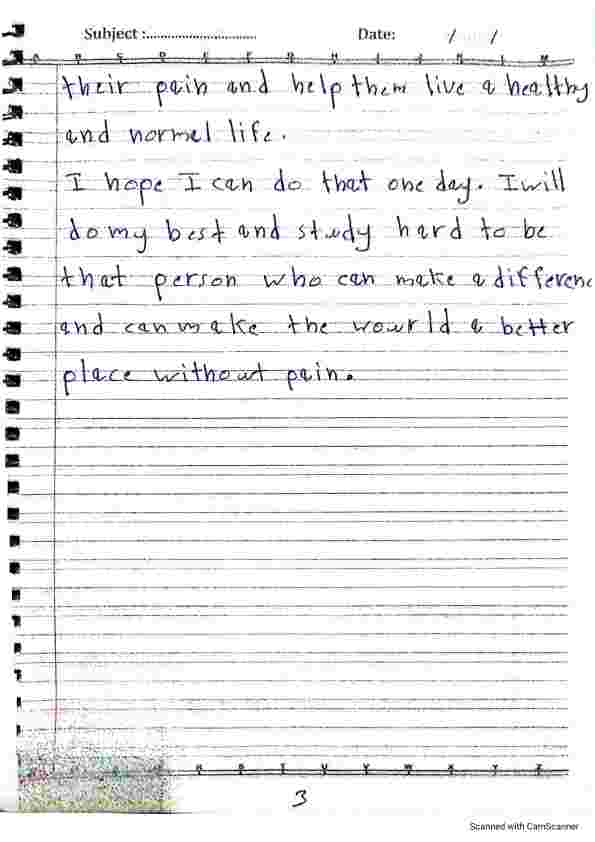 Subject :.............................. Date: / /
A B C D E F G H I J K L M
their pain and help them live a healthy
and normel life.
I hope I can do that one day. I will
do my best and study hard to be
that person who can make a differenc
and can make the wourld a better
place without pain.
3
Scanned with CamScanner